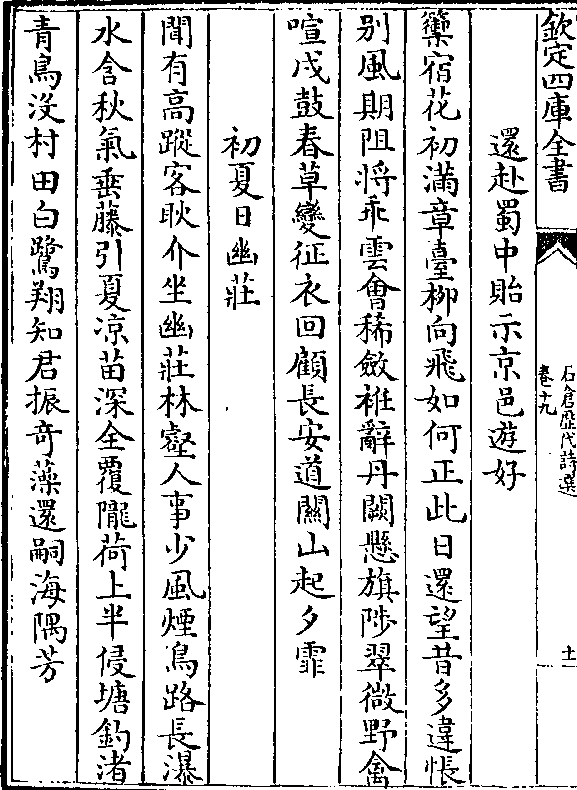 欽定四庫全書
石倉歷代詩選
卷十九
十一
還赴蜀中貽示京邑遊好
籞宿花初滿章臺栁向飛如何正此日還望昔多違悵
别風期阻將乖雲㑹稀斂袵辭丹闕懸旗陟翠微野禽
喧戍鼓春草變征衣回顧長安道關山起夕霏
初夏日幽莊
聞有高蹤客耿介坐幽莊林壑人事少風煙鳥路長瀑
水含秋氣垂藤引夏凉苗深全覆隴荷上半侵塘釣渚
青鳬没村田白鷺翔知君振奇藻還嗣海隅芳